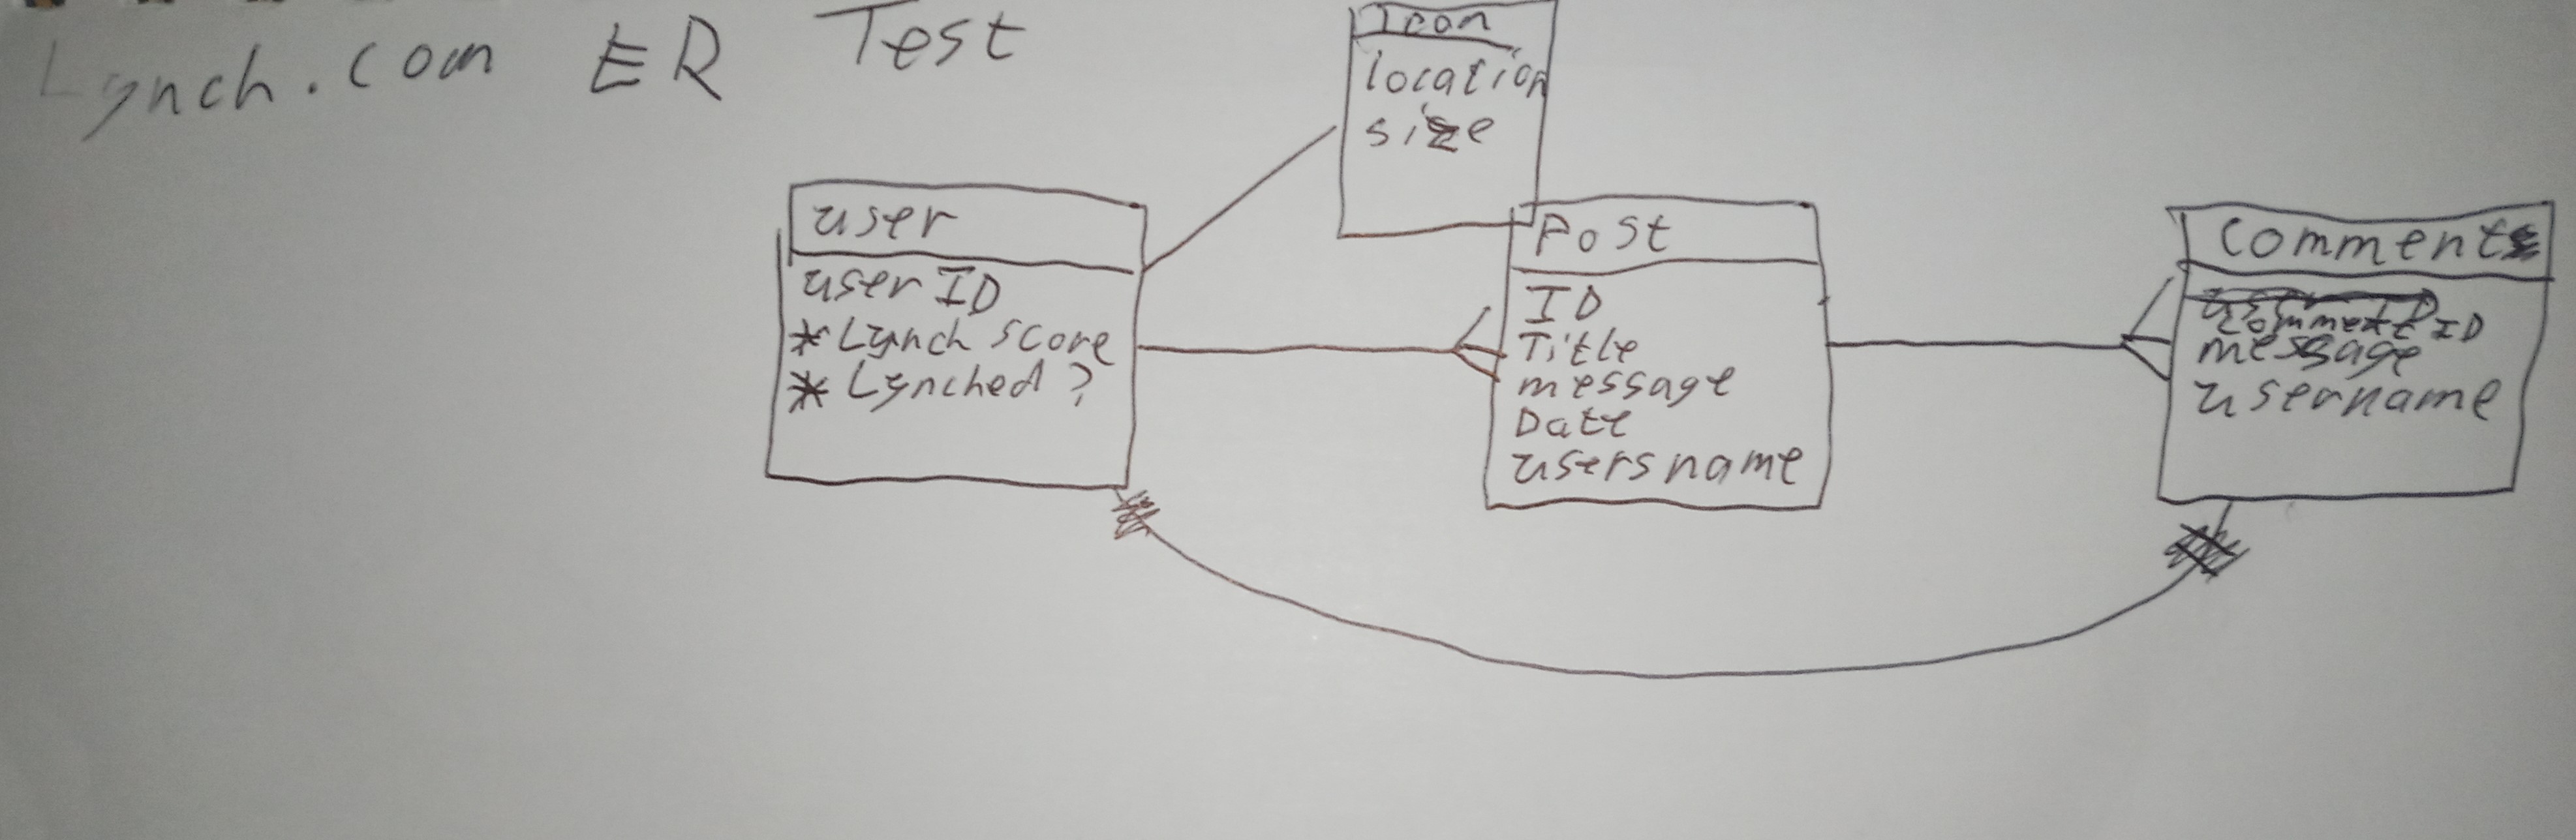 Lynch.com ER Test
Icon
location
size
user
userID
*Lynch score
*Lynched?
Post
ID
Title
message
Date
usersname
Comment
Comment ID
message
username